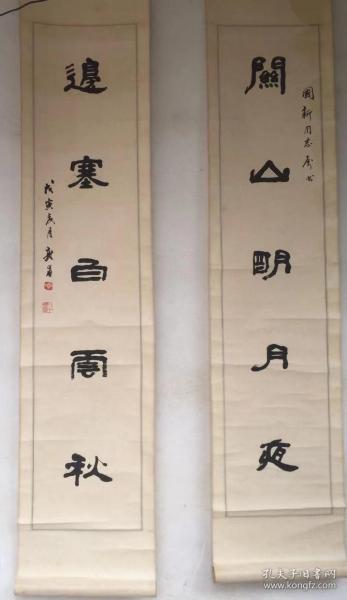 關山明月夜
國新同志屬書
邊塞白雲秋
戊寅
孔夫子旧书网
www.kongfz.com